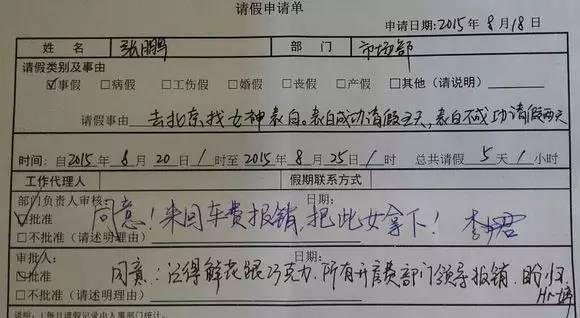 请假申请单
申请日期:2015年8月18日
姓名 张鹏 部门 市场部
请假类别及事由
☑事假 □病假 □工伤假 □婚假 □丧假 □产假 □其他（请说明）
请假事由 去北京找女神表白。表白成功请假五天，表白不成功请假两天
时间：自2015年8月20日1时至2015年8月25日1时 总共请假5天1小时
工作代理人 假期联系方式
部门负责人审核: 日期:
☑批准 同意！来回车费报销，把此女拿下！李君
□不批准（请述明理由）
审批人: 日期:
☑批准 同意：记得鲜花跟巧克力，所有开店费部门领导报销，盼归
□不批准（请述明理由） Hr-婷
说明：1.每月请假记录由人事部门统计。